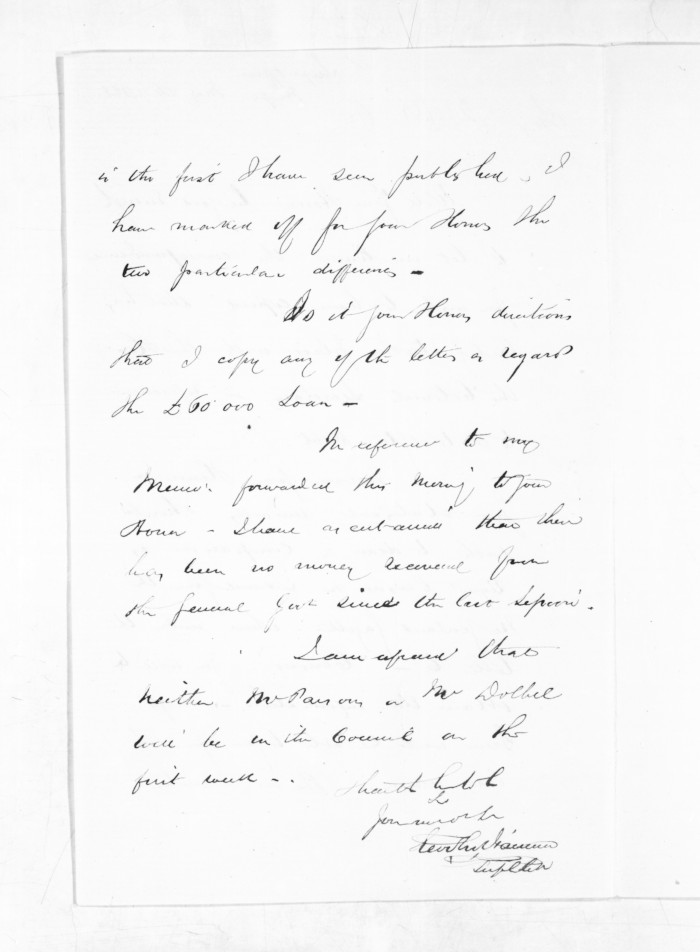 is the first I have seen published, I
have marked off for your Honor the
two particular differences -
Is it your Honors directions
that I copy any of the letters as regard
the £60.000 Loan -
In reference to my
Memo: forwarded this Morning to your
Honor - I have ascertained that there
has been no money received from
the General Govt since the last
I am afraid that
neither Mr Parsons or Mr Dolbel
will be in the Council on the
first week - .
I have the